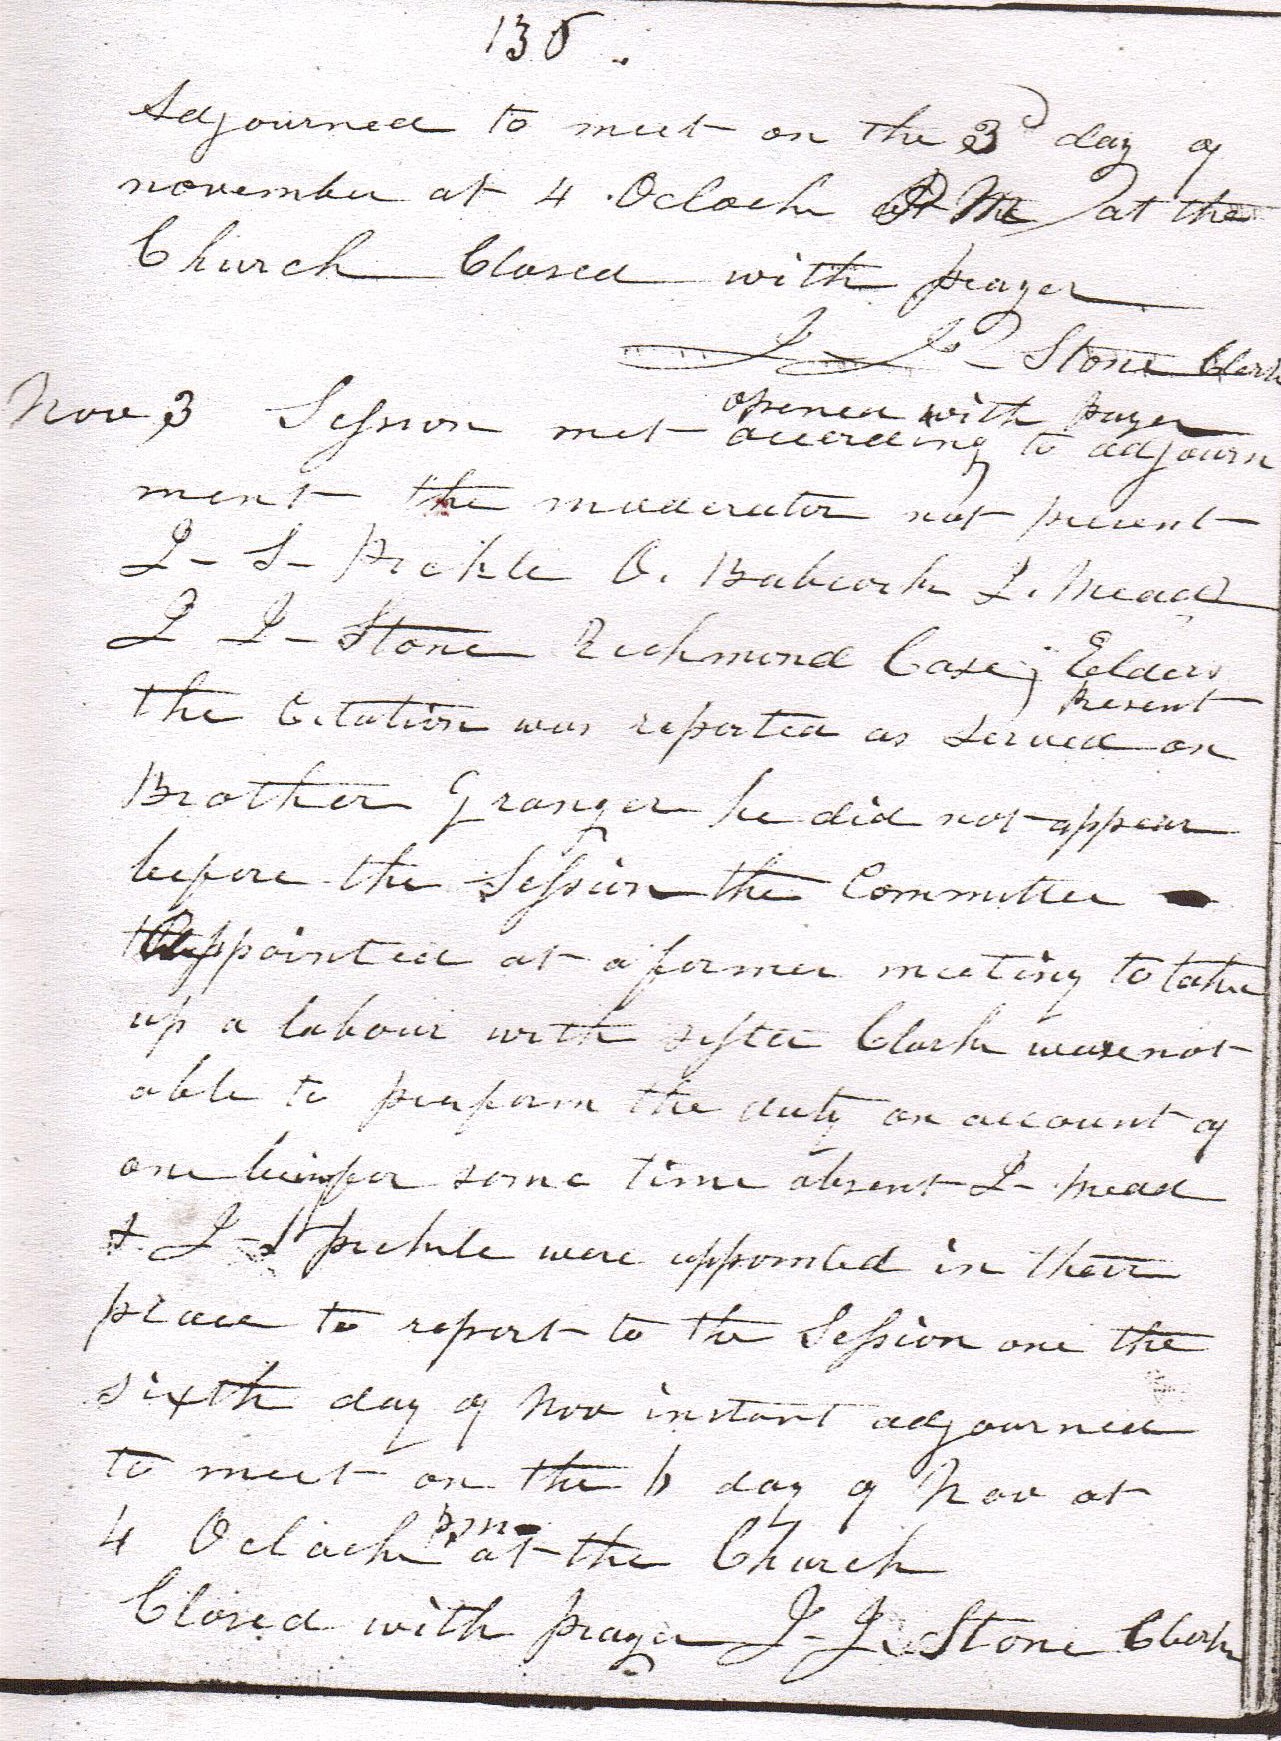 136.
Adjourned to meet on the 3d day of
november at 4 Oclock P M at the
Church Closed with prayer
J J Stone Clerk
opened with prayer
Nov 3 Session met according to adjourn
ment the moderator not present
J - S - Pickle O. Babcock J. Mead
J J - Stone Richmond Case, Elders
Present
the Citation was reported as served on
Brother Granger he did not appear
before the Session the Committee
appointed at a former meeting to take
up a labour with sister Clark were not
able to perform the duty on account of
one being for some time absent J - Mead
& J - S pickle were appointed in their
place to report to the Session one the
sixth day of Nov instant adjourned
to meet on the 6 day of Nov at
PM
4 Oclock at the Church
Closed with prayer J - J. Stone Clerk